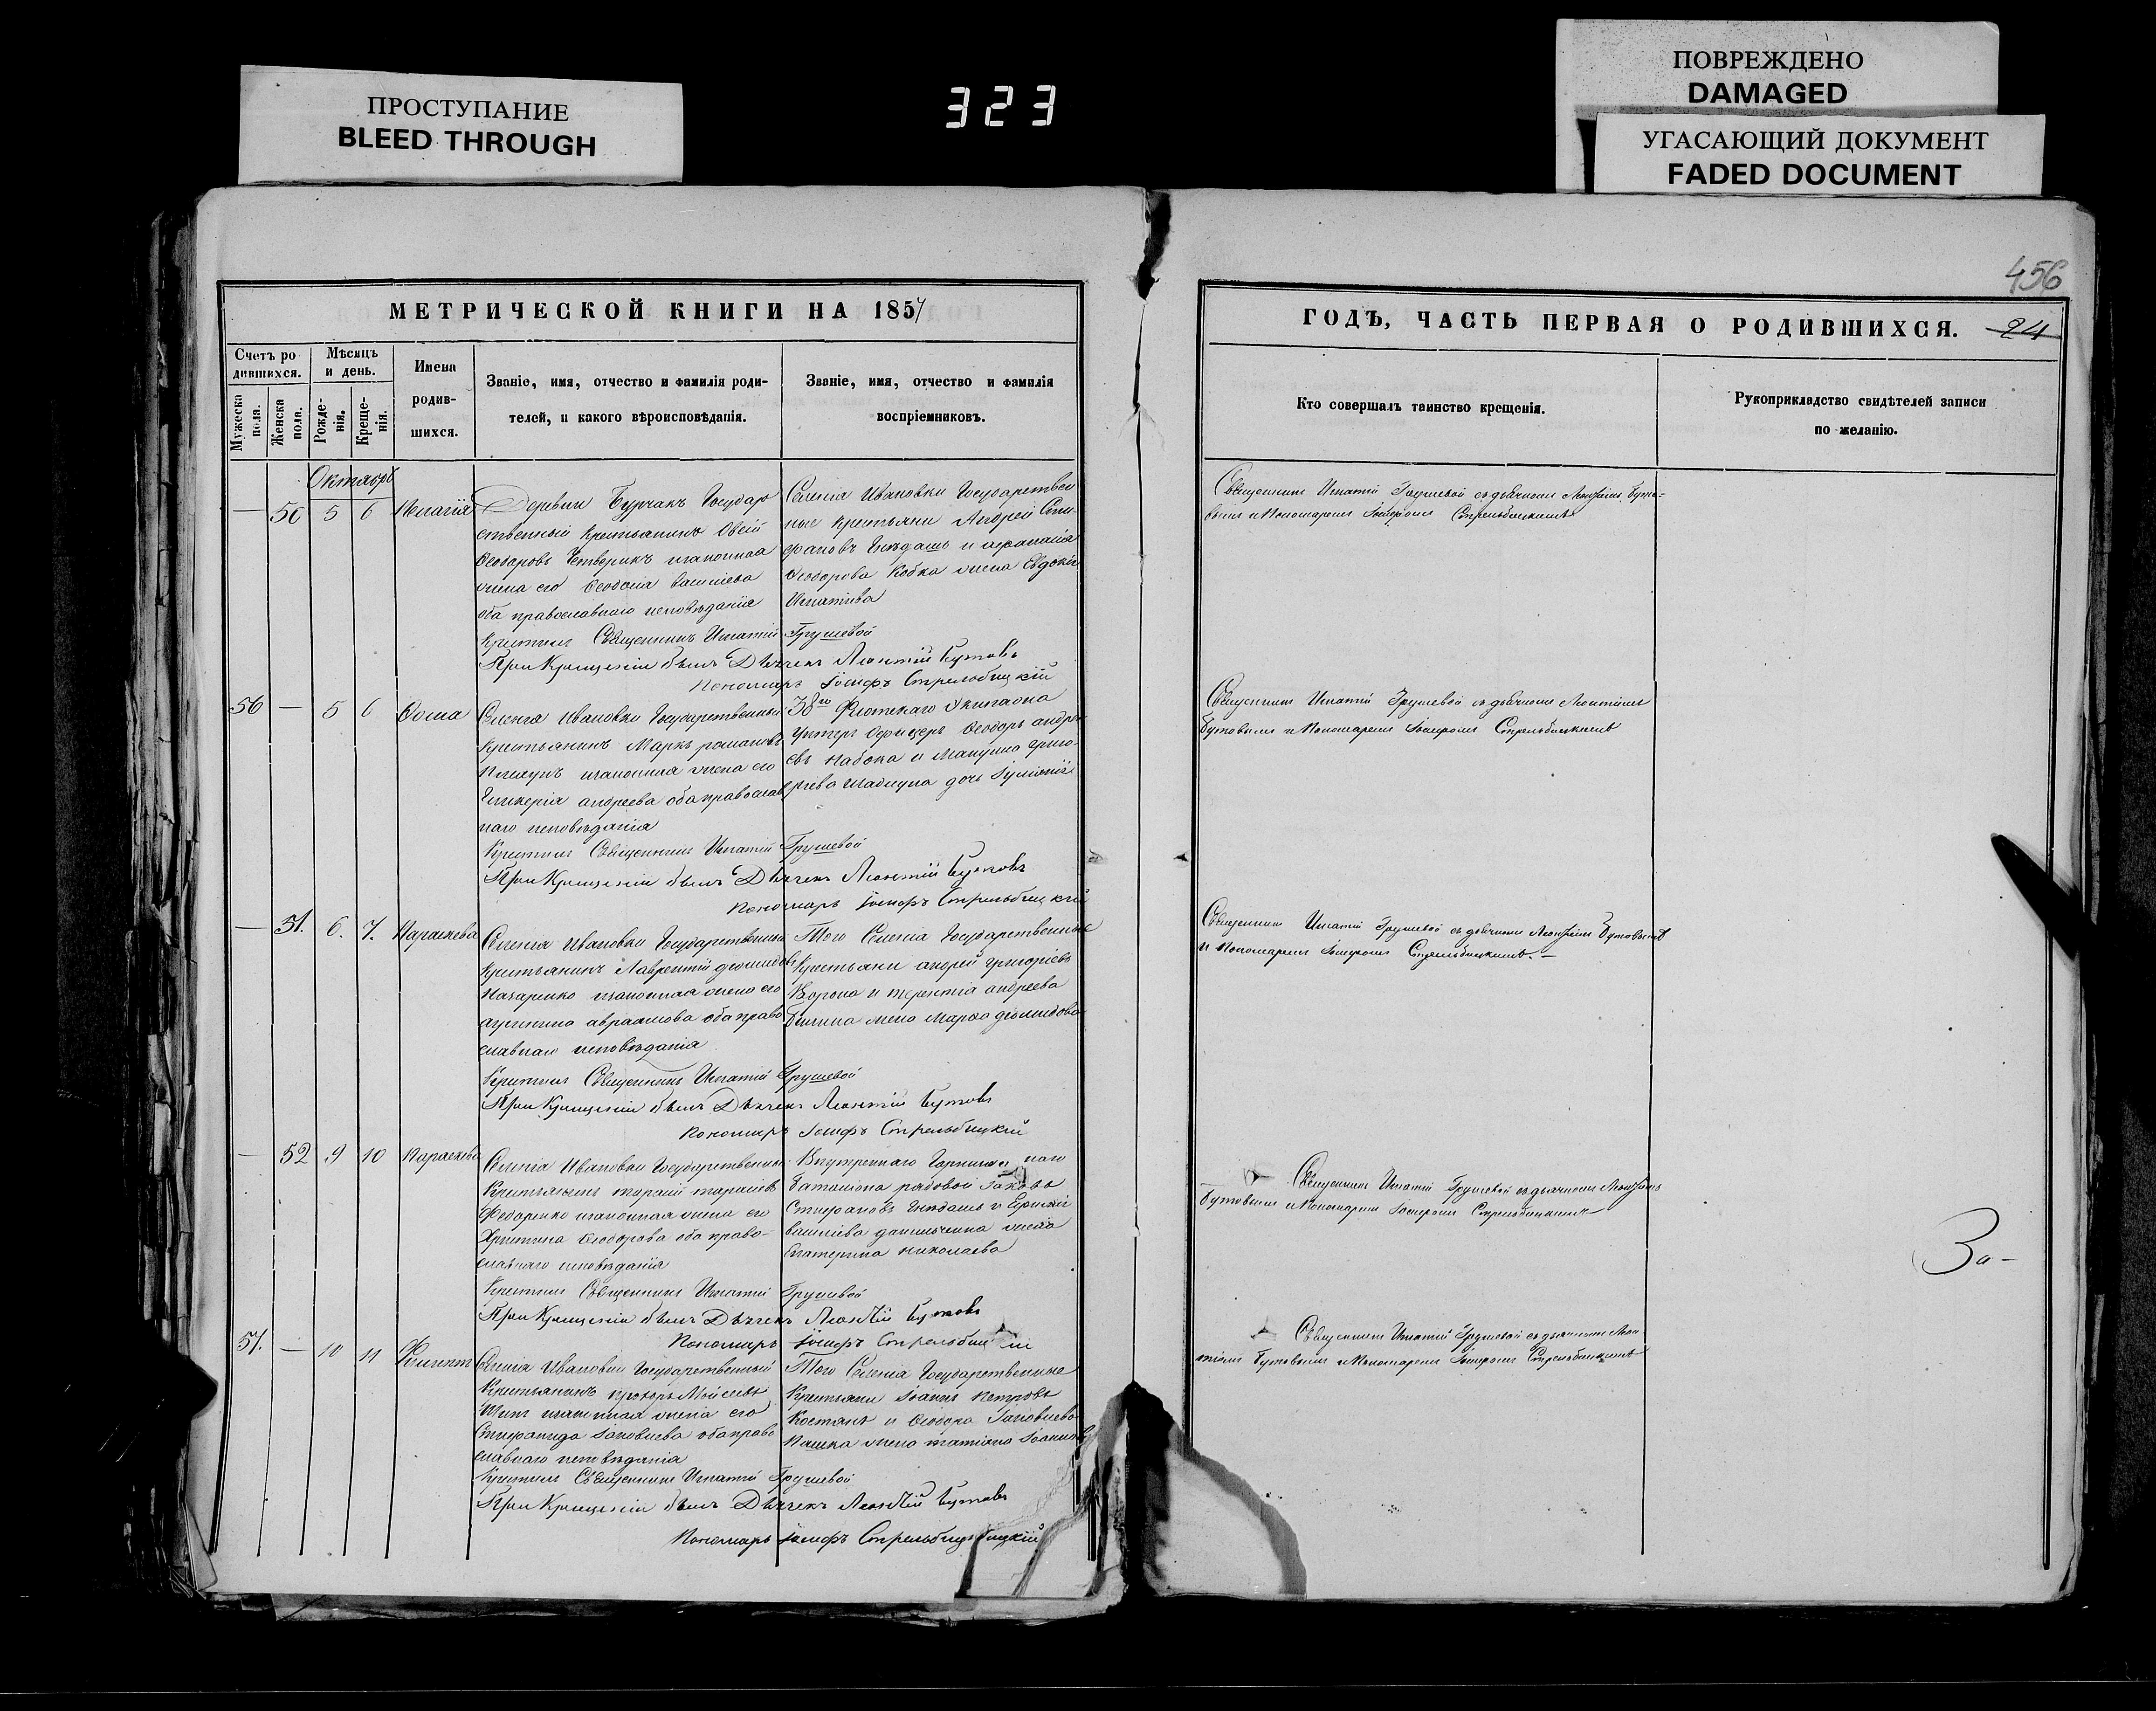 ПРОСТУПАНИЕ
BLEED THROUGH
323
ПОВРЕЖДЕНО
DAMAGED
УГАСАЮЩИЙ ДОКУМЕНТ
FADED DOCUMENT
456
МЕТРИЧЕСКОЙ КНИГИ НА 1857
ГОДЪ, ЧАСТЬ ПЕРВАЯ О РОДИВШИХСЯ. 24
Счетъ ро
дившихся.
Мужеска
пола.
Женска
пола.
Мѣсяцъ
и день.
Рожде-
нія.
Креще-
нія.
Имена
родив-
шихся.
Званіе, имя, отчество и фамилія роди-
телей, и какого вѣроисповѣданія.
Званіе, имя, отчество и фамилія
воспріемниковъ.
Кто совершалъ таинство крещенія.
Рукоприкладство свидѣтелей записи
по желанію.
Октябрь
— 50 5 6 Пелагія
Деревни Бурчакъ Государ
ственный крестьянинъ
Феодоровъ Четверикъ законная
жена его Феодосія Василіева
оба православнаго исповѣданія
Селенія Ивановки Государствен
ные крестьяни Андрей Сте-
фановъ и
Феодорова Кобка жена Евдокія
Игнатіева
Крестилъ Священникъ Игнатій Грушевой
При Крещеніи былъ Дьячекъ Леонтій Бутовъ
Пономарь Іосифъ Стрельбицкій
Священникъ Игнатій Грушевой съ дьячкомъ Леонтіемъ Буто-
вымъ и Пономаремъ Іосифомъ Стрельбицкимъ
56 — 5 6 Фома
Селенія Ивановки Государственный
Крестьянинъ Маркъ Романовъ
законная жена его
Гликерія Андреева оба православ
наго исповѣданія
38го Флотскаго Экипажа
Унтеръ Офицеръ Феодоръ Андре
евъ Набока и Григо-
ріева дочь
Крестилъ Священникъ Игнатій Грушевой
При Крещеніи былъ Дьячекъ Леонтій Бутовъ
Пономарь Іосифъ Стрельбицкій
Священникъ Игнатій Грушевой съ дьячкомъ Леонтіемъ
Бутовымъ и Пономаремъ Іосифомъ Стрельбицкимъ
— 51. 6. 7. Параскева
Селенія Ивановки Государственный
Крестьянинъ Лаврентій Діомидовъ
Назаренко законная жена его
Авраамова оба право
славнаго исповѣданія
Того Селенія Государственные
Крестьяни Андрей Григоріевъ
Ворона и Терентія Андреева
жена Марфа Діомидова
Крестилъ Священникъ Игнатій Грушевой
При Крещеніи былъ Дьячекъ Леонтій Бутовъ
Пономарь Іосифъ Стрельбицкій
Священникъ Игнатій Грушевой съ дьячкомъ Леонтіемъ Бутовымъ
и Пономаремъ Іосифомъ Стрельбицкимъ. —
— 52 9 10 Параскева
Селенія Ивановки Государственный
Крестьянинъ Тарасій Тарасіевъ
Федоренко законная жена его
Христина Феодорова оба право-
славнаго исповѣданія
Внутренняго наго
Баталіона рядовой Іаковъ
Стефановъ и
Василіева жена
Екатерина Николаева
Крестилъ Священникъ Игнатій Грушевой
При Крещеніи былъ Дьячекъ Леонтій Бутовъ
Пономарь Іосифъ
Священникъ Игнатій Грушевой съ дьячкомъ Леонтіемъ
Бутовымъ и Пономаремъ Іосифомъ Стрельбицкимъ
За-
57. — 10 11
Селенія Ивановки Государственный
Крестьянинъ Прохоръ Мойсеевъ
законная жена его
Стефанида Іаковлева оба право
славнаго исповѣданія
Того Селенія Государственные
Крестьяни Іоаннъ Петровъ
и Феодора Іаковлева
жена Татіана
Крестилъ Священникъ Игнатій Грушевой
При Крещеніи былъ Дьячекъ Леонтій Бутовъ
Пономарь Іосифъ
Священникъ Игнатій Грушевой съ дьячкомъ Леон
тіемъ Бутовымъ и Пономаремъ Іосифомъ Стрельбицкимъ